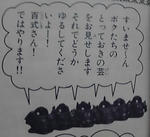 すいませーん
ボクたちの
とっておきの芸
をお見せします
それでどうか
ゆるしてくださ
いよー！
百式さん！
ではやります!!